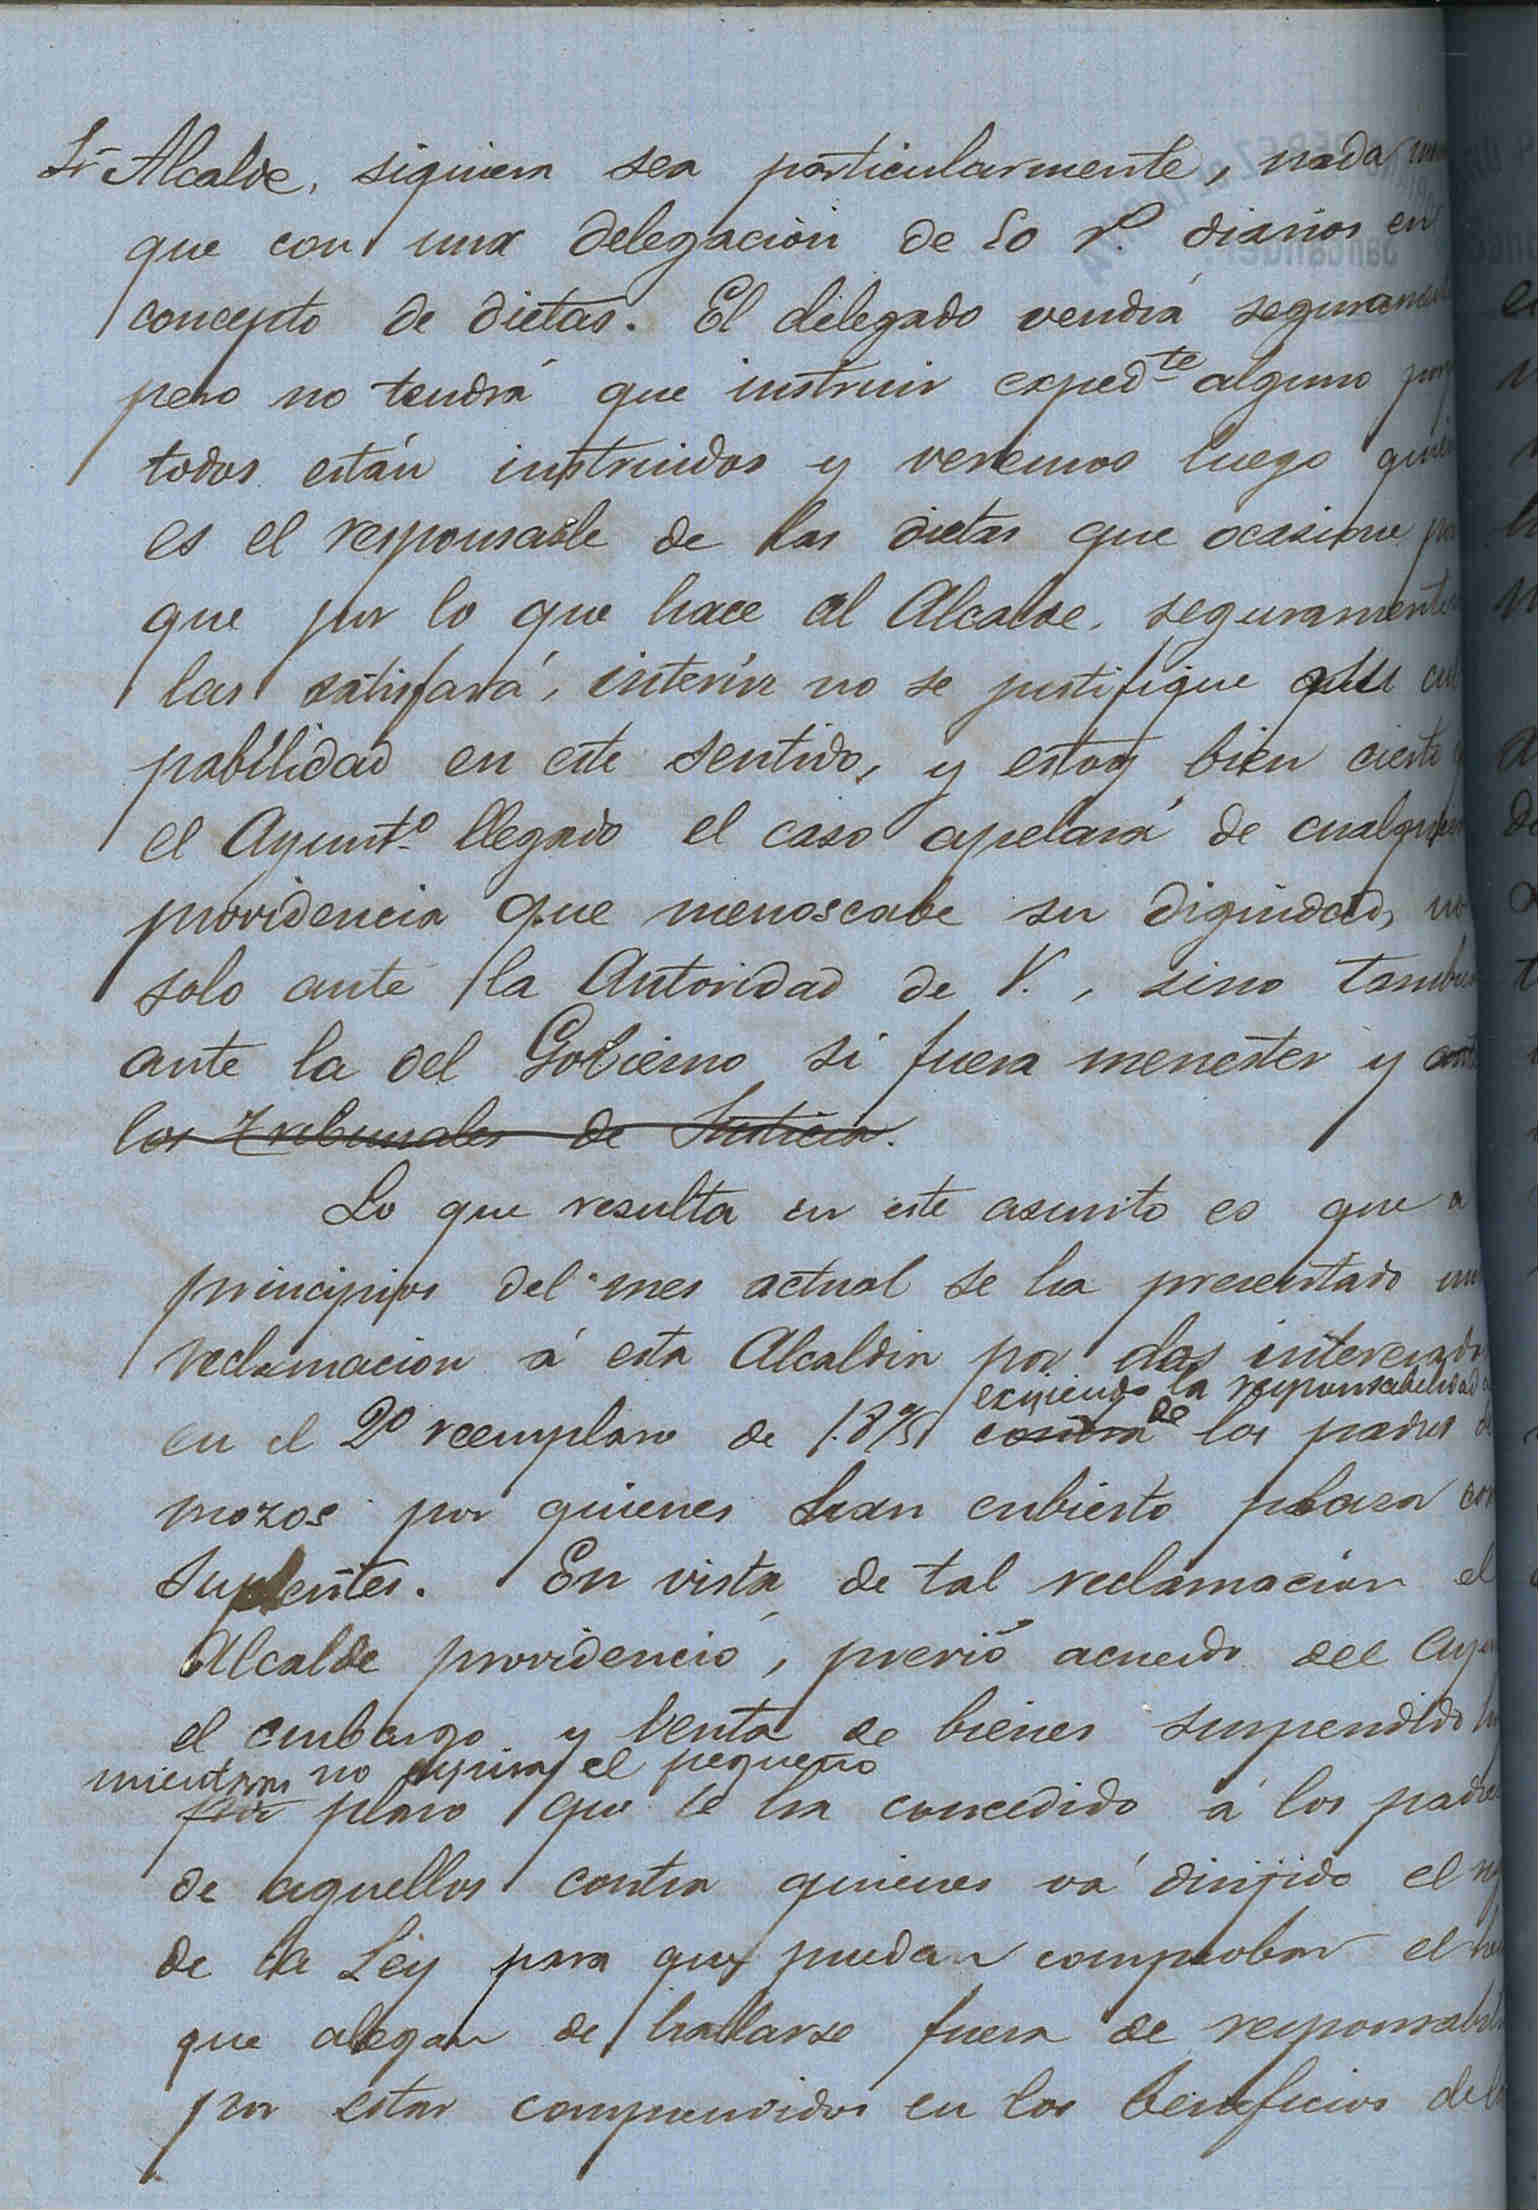 Sr Alcalde, siquiera sea particularmente, nada
que con una delegación de 50 rs. diarios en
concepto de dietas. El delegado vendrá seguramen
pero no tendrá que instruir expedte alguno por
todos están instruidos y veremos luego quien
es el responsable de las dietas que ocasione
que por lo que hace al Alcalde, seguramente
las satisfará, interin no se justifique su cul
pabilidad en este sentido, y estoy bien cierto
el Ayuntº llegado el caso apelará de cualquier
providencia que menoscabe su dignidad, no
solo ante la Autoridad de V., sino tambien
ante la del Gobierno si fuera menester y ante
los Tribunales de Justicia.
Lo que resulta en este asunto es que a
principios del mes actual se ha presentado una
reclamacion á esta Alcaldia por dos interesados
exigiendo la responsabilidad
en el 2º reemplazo de 1875 contra de los padres de
mozos por quienes han cubierto plaza con
suplentes. En vista de tal reclamación el
Alcalde providenció, previo acuerdo del Ayun
el embargo y venta de bienes suspendido
mientras no expira el pequeño
plazo que se ha concedido á los padres
de aquellos contra quienes vá dirijido el
de la Ley para que puedan comprobar el
que alegan de hallarse fuera de responsabili
por estar comprendidos en los beneficios de la